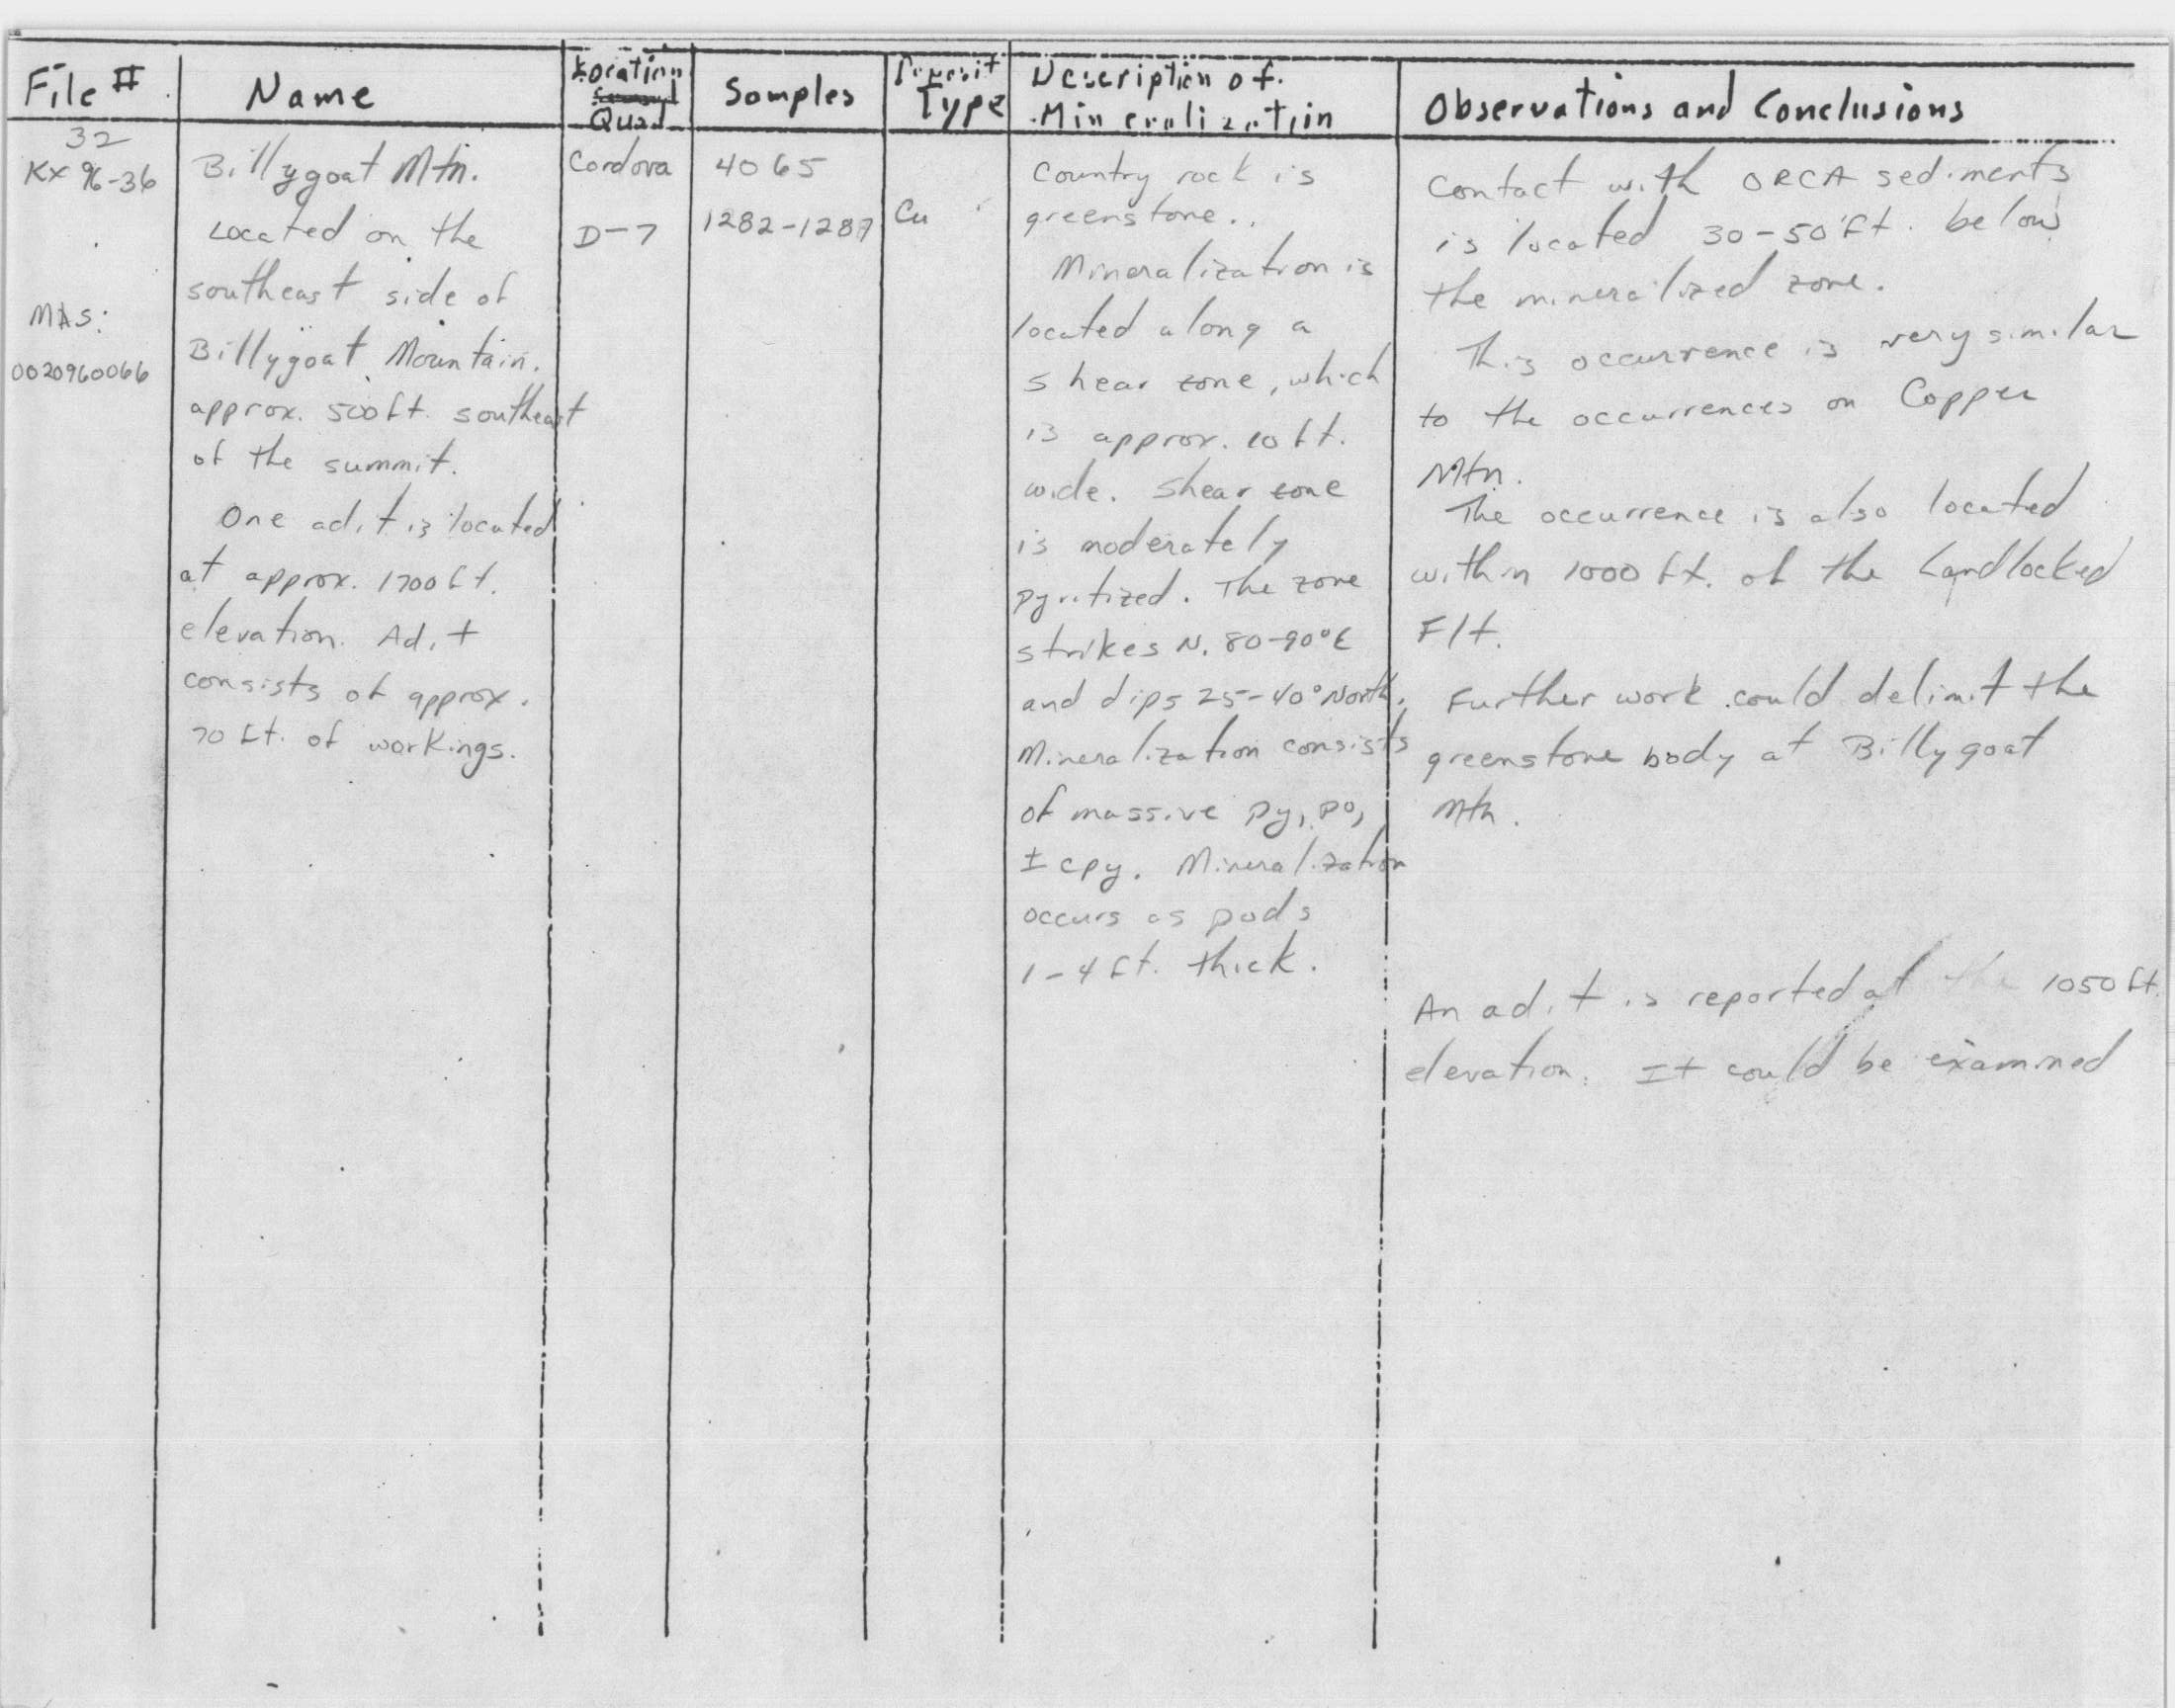 File #
Name
Location
Quad
Samples
Deposit
Type
Description of
Mineralization
Observations and Conclusions
32
Kx 96-36
MAS:
0020960066
Billygoat Mtn.
Located on the
southeast side of
Billygoat Mountain.
approx. 500 ft. southeast
of the summit.
One adit is located
at approx. 1700 ft.
elevation. Adit
consists of approx.
70 ft. of workings.
Cordova
D-7
4065
1282-1287
Cu
Country rock is
greenstone..
Mineralization is
located along a
shear zone, which
is approx. 10 ft.
wide. Shear zone
is moderately
pyritized. The zone
strikes N. 80-90°E
and dips 25-40° North.
Mineralization consists
of massive py, po,
± cpy. Mineralization
occurs as pods
1-4 ft. thick.
Contact with ORCA sediments
is located 30-50 ft. below
the mineralized zone.
This occurrence is very similar
to the occurrences on Copper
Mtn.
The occurrence is also located
within 1000 ft. of the Landlocked
Flt.
Further work could delimit the
greenstone body at Billygoat
Mtn.
An adit is reported at the 1050 ft.
elevation. It could be examined